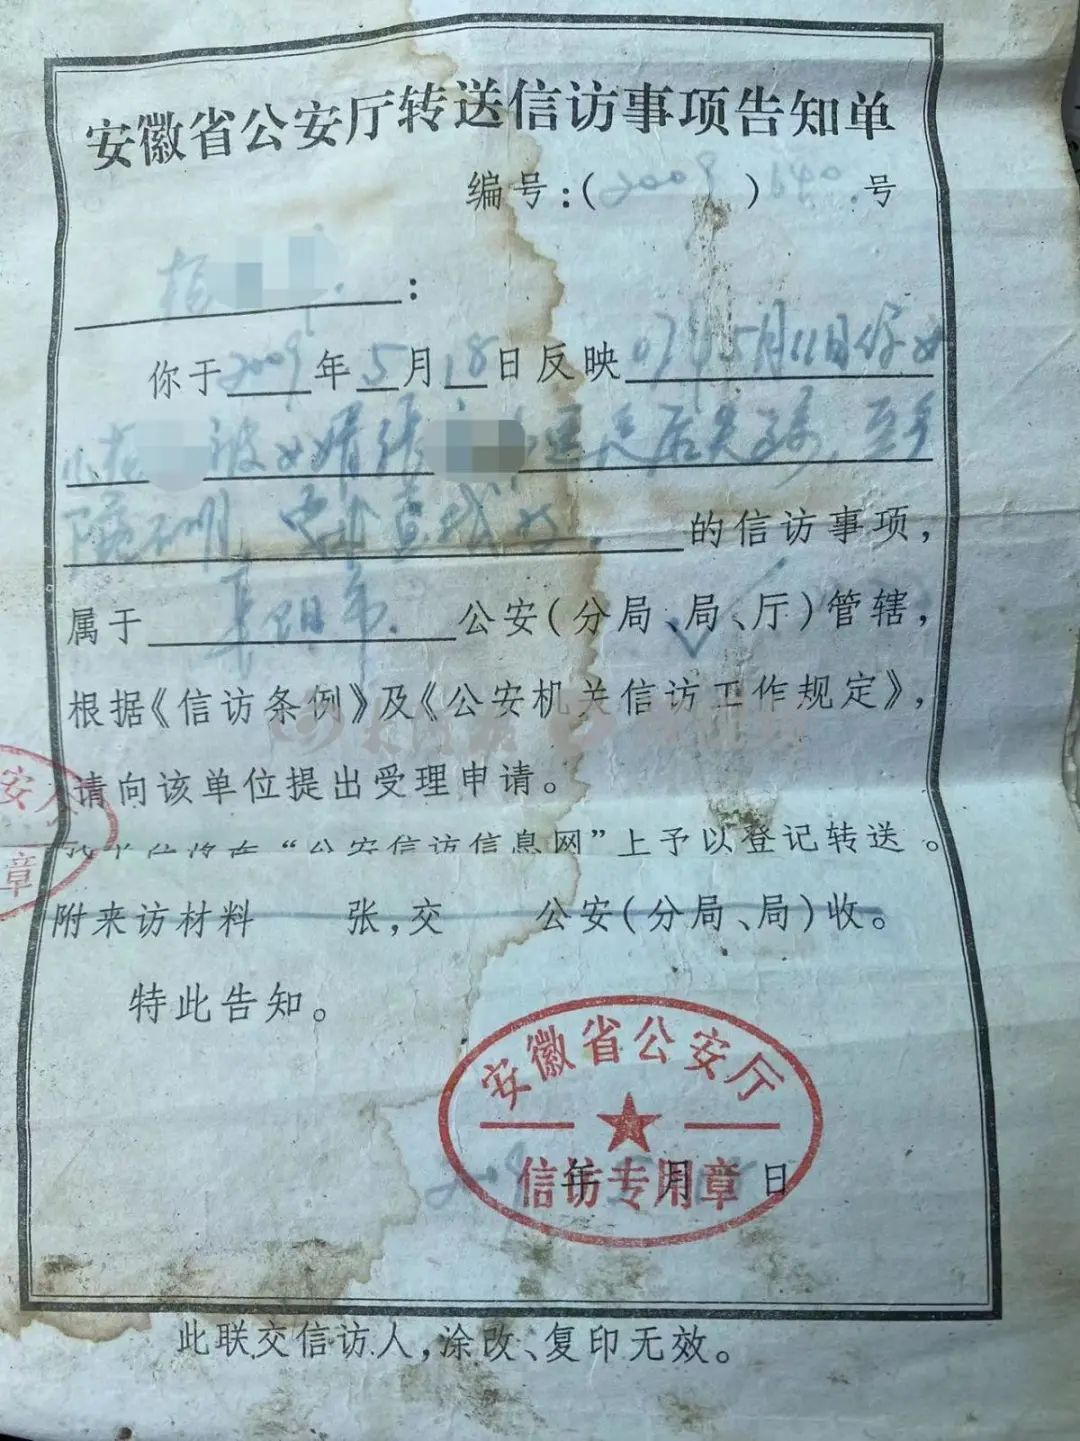 安徽省公安厅转送信访事项告知单
编号:(2009)640号
:
你于2009年5月18日反映07年5月11日你女
小 被女婿张 后失踪,至今
下落不明,要求查找
的信访事项,
属于阜阳市公安(分局、局、厅)管辖,
根据《信访条例》及《公安机关信访工作规定》,
请向该单位提出受理申请。
“公安信访信息网”上予以登记转送。
附来访材料 张,交 公安(分局、局)收。
特此告知。
安徽省公安厅
信访专用章
2009年 月 日
此联交信访人,涂改、复印无效。
安
章